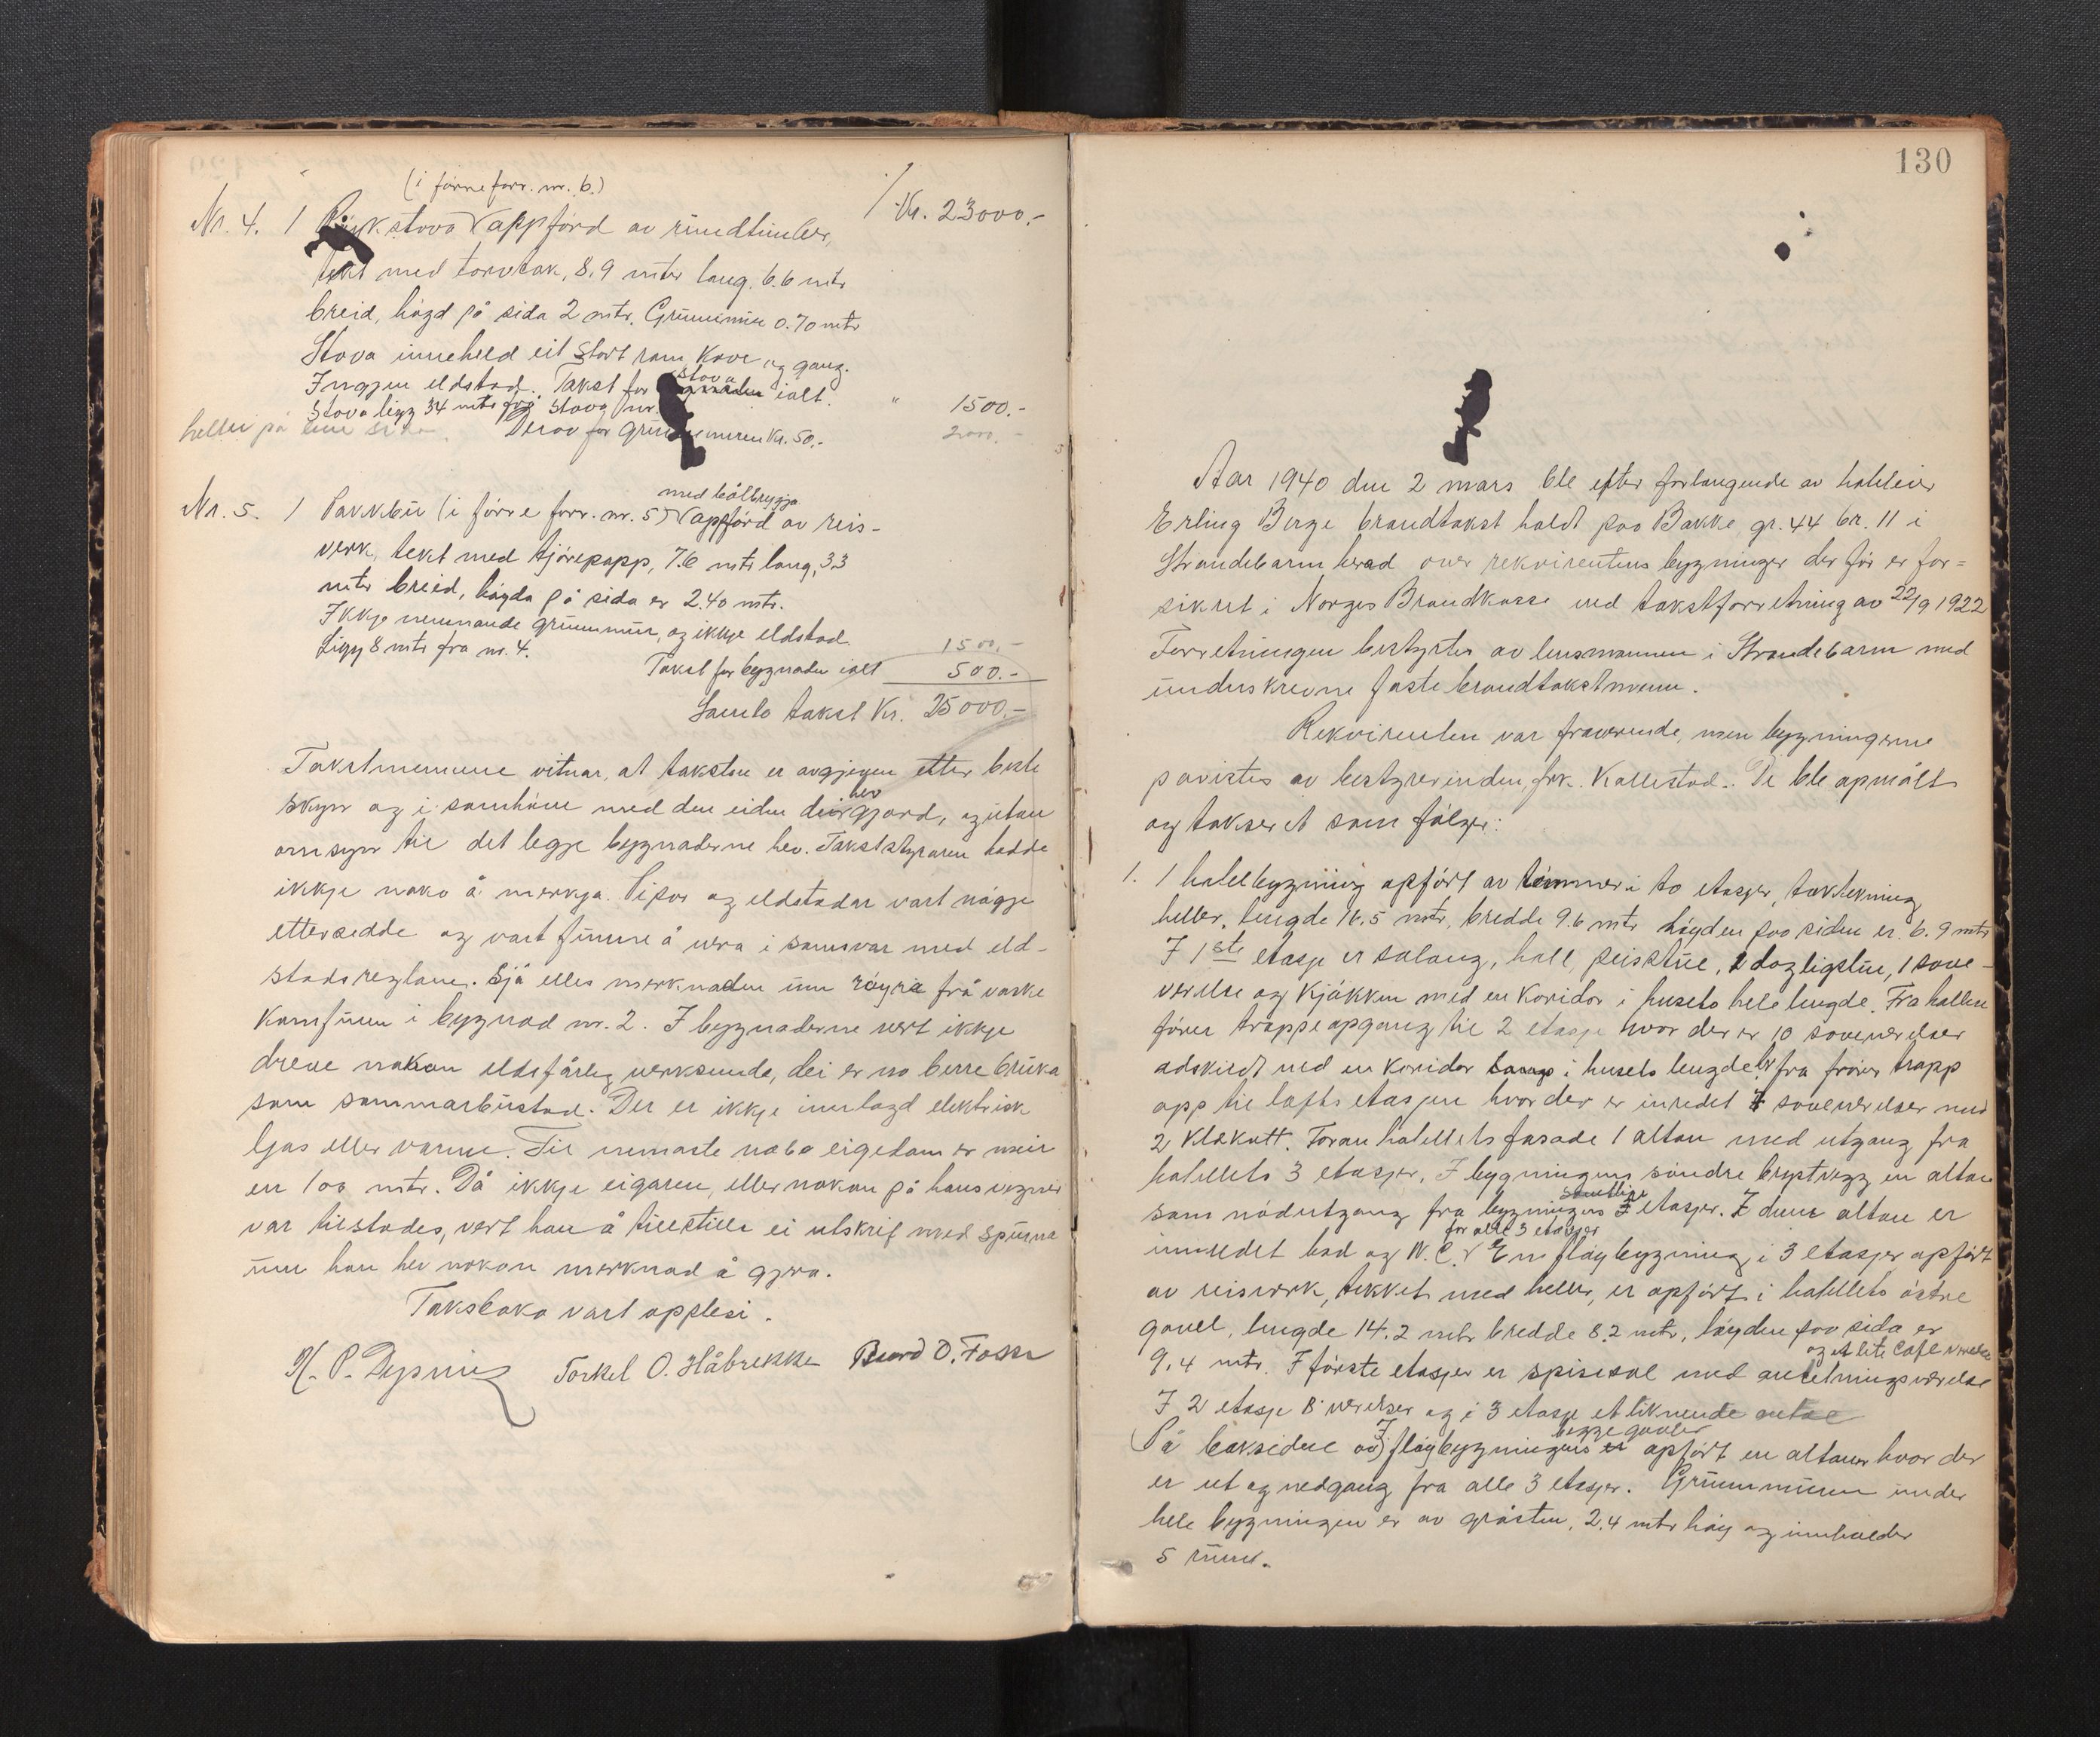 (i førre forr. nr. 6.)
Nr. 4. 1 Røykstova appførd av rundtimber, ⁒ Kr. 23000.-
tekt med torvtak, 8.9 mtr lang, 6.6 mtr
breid, høgd på sida 2 mtr. Grunnmur 0.70 mtr
Stova inneheld eit stort rom, kove og gang.
Ingjen eldstad. Takst for stova ialt. " 1500.-
Stova ligg 34 mtr frå stova nr.
heller på eine sida. Derav for grunnmuren Kr. 50.- 2000.-
med bålbryggja
Nr. 5. 1 Pakkbu (i førre forr. nr. 5) appførd av reis-
verk, tekt med tjørepapp, 7.6 mtr lang, 3.3
mtr breid, høgda på sida er 2.40 mtr.
Ikkje nemnande grunnmur, og ikkje eldstad.
Ligg 8 mtr fra nr. 4. 1500.-
Takst for bygnaden ialt 500.-
Samla takst Kr. 25000.-
Takstmennene vitnar, at taksten er avgjegen etter beste
skyn og i samhøve med den eiden dei hev gjord, og utan
omsyn til det legje bygnaderne hev. Takststyraren hadde
ikkje noko å merkja. Pipor og eldstadar vart nøgje
ettersedde og vart funne å vera i samsvar med eld-
stadsreglane. Sjå elles merknaden um røyra frå vaske
komfuren i bygnad nr. 2. I bygnaderne vert ikkje
dreve nokon eldsfårleg verksemd, dei er no berre bruka
som sommarbustad. Der er ikkje innlagd elektrisk
ljos eller varme. Til nemaste nabo eigedom er meir
en 100 mtr. Då ikkje eigaren, eller nokon på hans vegner
var tilstades, vert han å tillstilla ei utskrift med spurna
um han hev nokon merknad å gjera.
Taksboka vart opplesi.
Torkel O. Håbrekke Baard O. Fosse
130
Aar 1940 den 2 mars ble efter forlangende av hotleier
Erling Berge brandtakst holdt paa Bakke, gr. 44 br. 11 i
Strandebarm herad over rekvirentens bygninger der før er for=
sikret i Norges Brandkasse ved takstforretning av 22/9 1922
Forretningen bestyrtes av lensmannen i Strandebarm med
underskrevne faste brandtakstmenn.
Rekvirenten var fraverende, men bygningerne
paavistes av bestyrerinden, frk. Kallestad. De ble opmålt
og taksert som følger:
1. 1 hotelbygning opført av tømmer i to etasjer, taktekning
heller, lengde 16.5 mtr, bredde 9.6 mtr høyden paa siden er 6.9 mtr
I 1ste etasje er salong, hall, peisstue, 1 dagligstue, 1 sove-
værelse og kjøkken med en koridor i husets hele lengde. Fra hallen
fører trappeopgang til 2 etasje hvor der er 10 soveværelser
adskildt ved en koridor i husets lengde, fra fører trapp
opp til loftsetasjen hvor der er inredet 7 soveværelser med
2 klekott. Foran hotellets fasade 1 altan med utgang fra
hotellets 3 etasjer. I bygningens søndre brystvegg en altan
som nødutgang fra bygningens etasjer. I denne altan er
for alle 3 etasjer
innredet bad og W.C. En fløybygning i 3 etasjer opført
av reisverk, tekket med heller, er opført i hotellets østre
gavel, lengde 14.2 mtr bredde 8.2 mtr, høyden paa sida er
og et lite Café værelse
9.4 mtr. I første etasjer er spisesal med anretningsværelse
I 2 etasje 8 værelser og i 3 etasje et liknende
begge gavler
På baksidene av fløybygningens opført en altan hvor der
er ut og nedgang fra alle 3 etasjer. Grunnmuren under
hele bygningen er av gråsten, 2.4 mtr høy og innholder
5 rum.